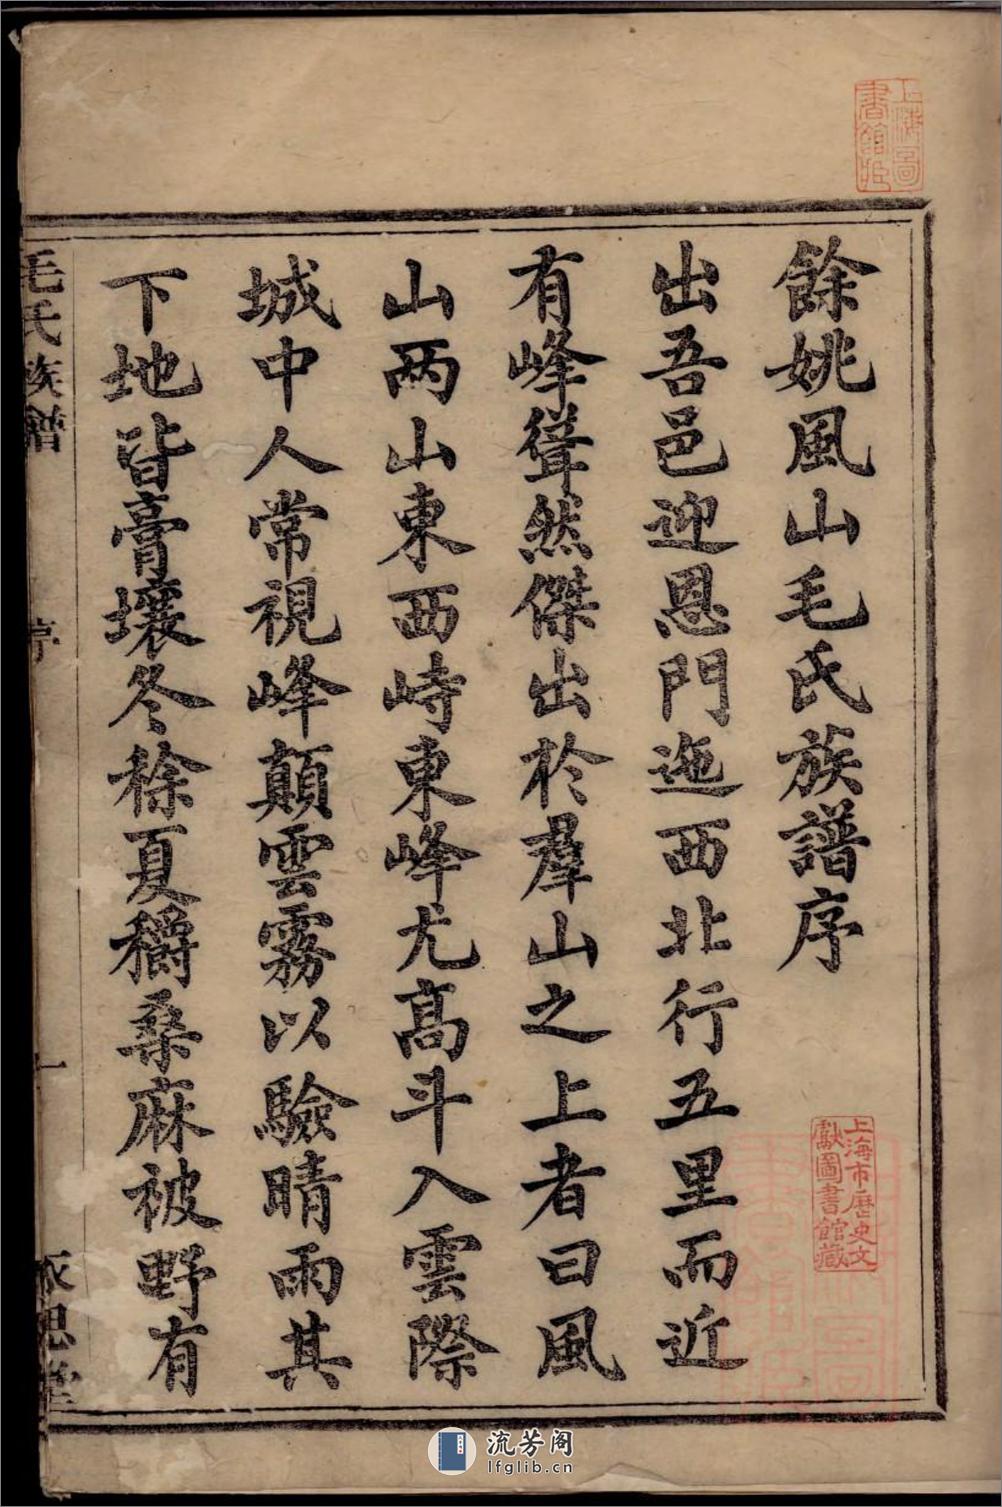 餘姚風山毛氏族譜序
出吾邑迎恩門迤西北行五里而近
有峰聳然傑出於羣山之上者曰風
山兩山東西峙東峰尤高斗入雲際
城中人常視峰顛雲霧以驗晴雨其
下地皆膏壤冬稌夏穱桑麻被野有
毛氏族譜
序
一
永思堂
上海圖書館
上海市歷史文
獻圖書館藏
流芳阁
lfglib.cn